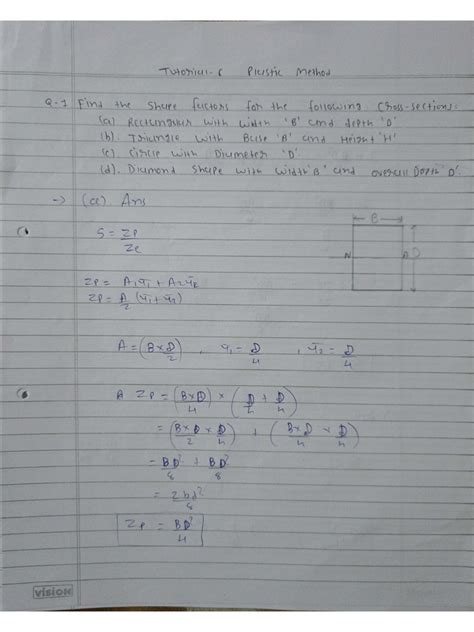 Tutorial-6 Plastic Method
Q-1 Find the shape factors for the following cross-sections:
(a) Rectangular with width 'B' and depth 'D'
(b). Triangle with Base 'B' and Height 'H'
(c). Circle with Diameter 'D'
(d). Diamond shape with width 'B' and overall Depth 'D'.
→ (a) Ans
B
S = Zp/Ze
N A D
Zp = A₁ȳ₁ + A₂ȳ₂
Zp = A/2 (ȳ₁ + ȳ₂)
A = (B×D/2) , ȳ₁ = D/4 , ȳ₂ = D/4
A Zp = (B×D/4) × (D/4 + D/4)
= (B×D/2 × D/4) + (B×D/4 × D/4)
= BD²/8 + BD²/8
= 2bd²/8
Zp = BD²/4
vision